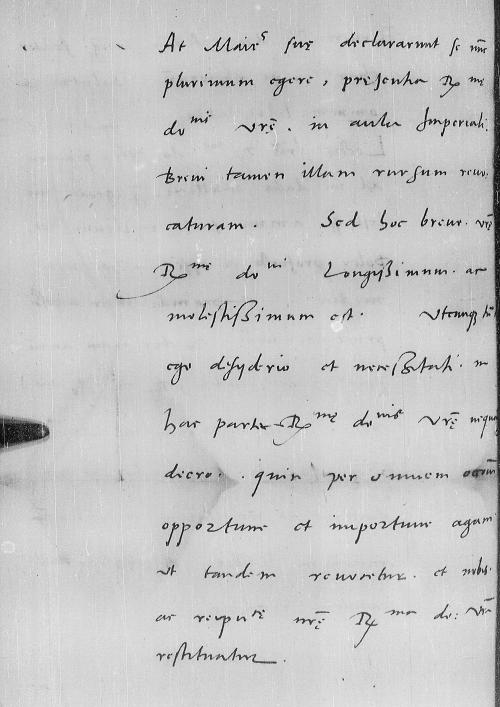 At Maies suę declararunt se nunc
plurimum egere, presentia Rmę
donis vrę. in aula Imperiali.
Brevi tamen illam rursum revo
caturam. Sed hoc breve. vrę
Rmę doni Longißimum. ac
molestißimum est. Utcunque tn
ego desyderio et neceßitati. in
hac parte Rmę donis vrę nequa
deero. quin per omnem occm
opportune et importune agam
ut tandem revocetur. et nobis.
ac reipucę nrę Rma do: vra
restituatur.